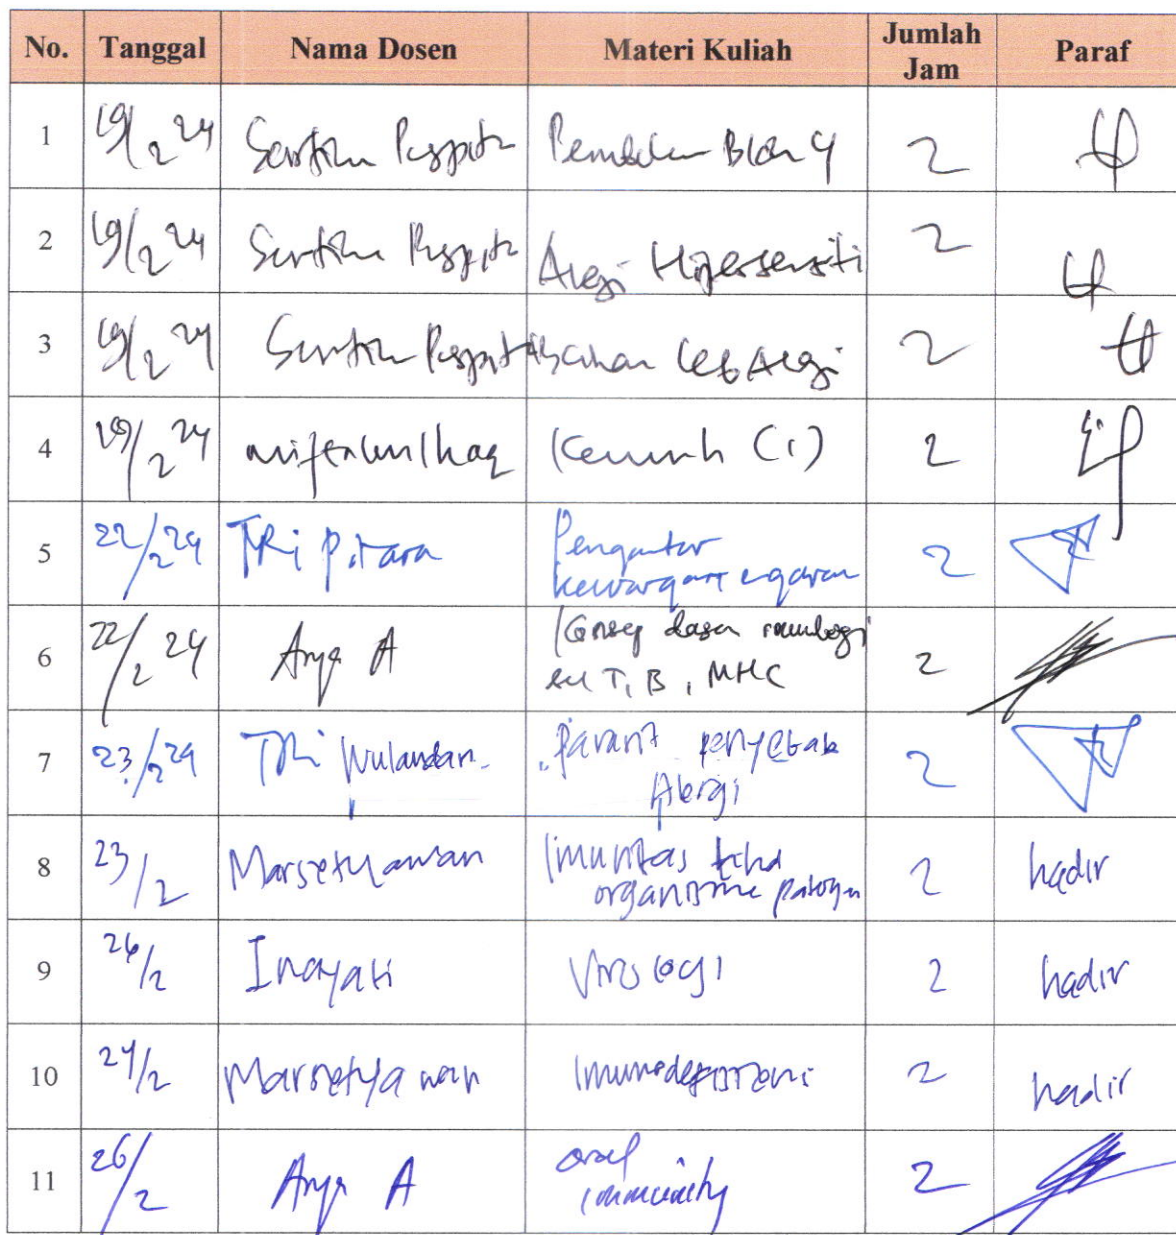 No. Tanggal Nama Dosen Materi Kuliah Jumlah Jam Paraf
1 19/2 24 Sartika Puspita Blok 4 2
2 19/2 24 Sartika Puspita Alergi Hipersensiti 2
3 19/2 24 Sartika Puspita Alergi 2
4 19/2 24 miftahulhaq (C1) 2
5 22/2 24 TRi Pitara Pengantar
kewarganegaraan 2
6 22/2 24 Arya A Konsep dasar imunologi
sel T, B, MHC 2
7 23/2 24 TRi Wulandari parasit penyebab
Alergi 2
8 23/2 Marsetyawan Imunitas thd
organisme patogen 2 hadir
9 26/2 Inayati Virologi 2 hadir
10 Marsetyawan Imunodefisiensi 2 hadir
11 26/2 Arya A oral
immunity 2